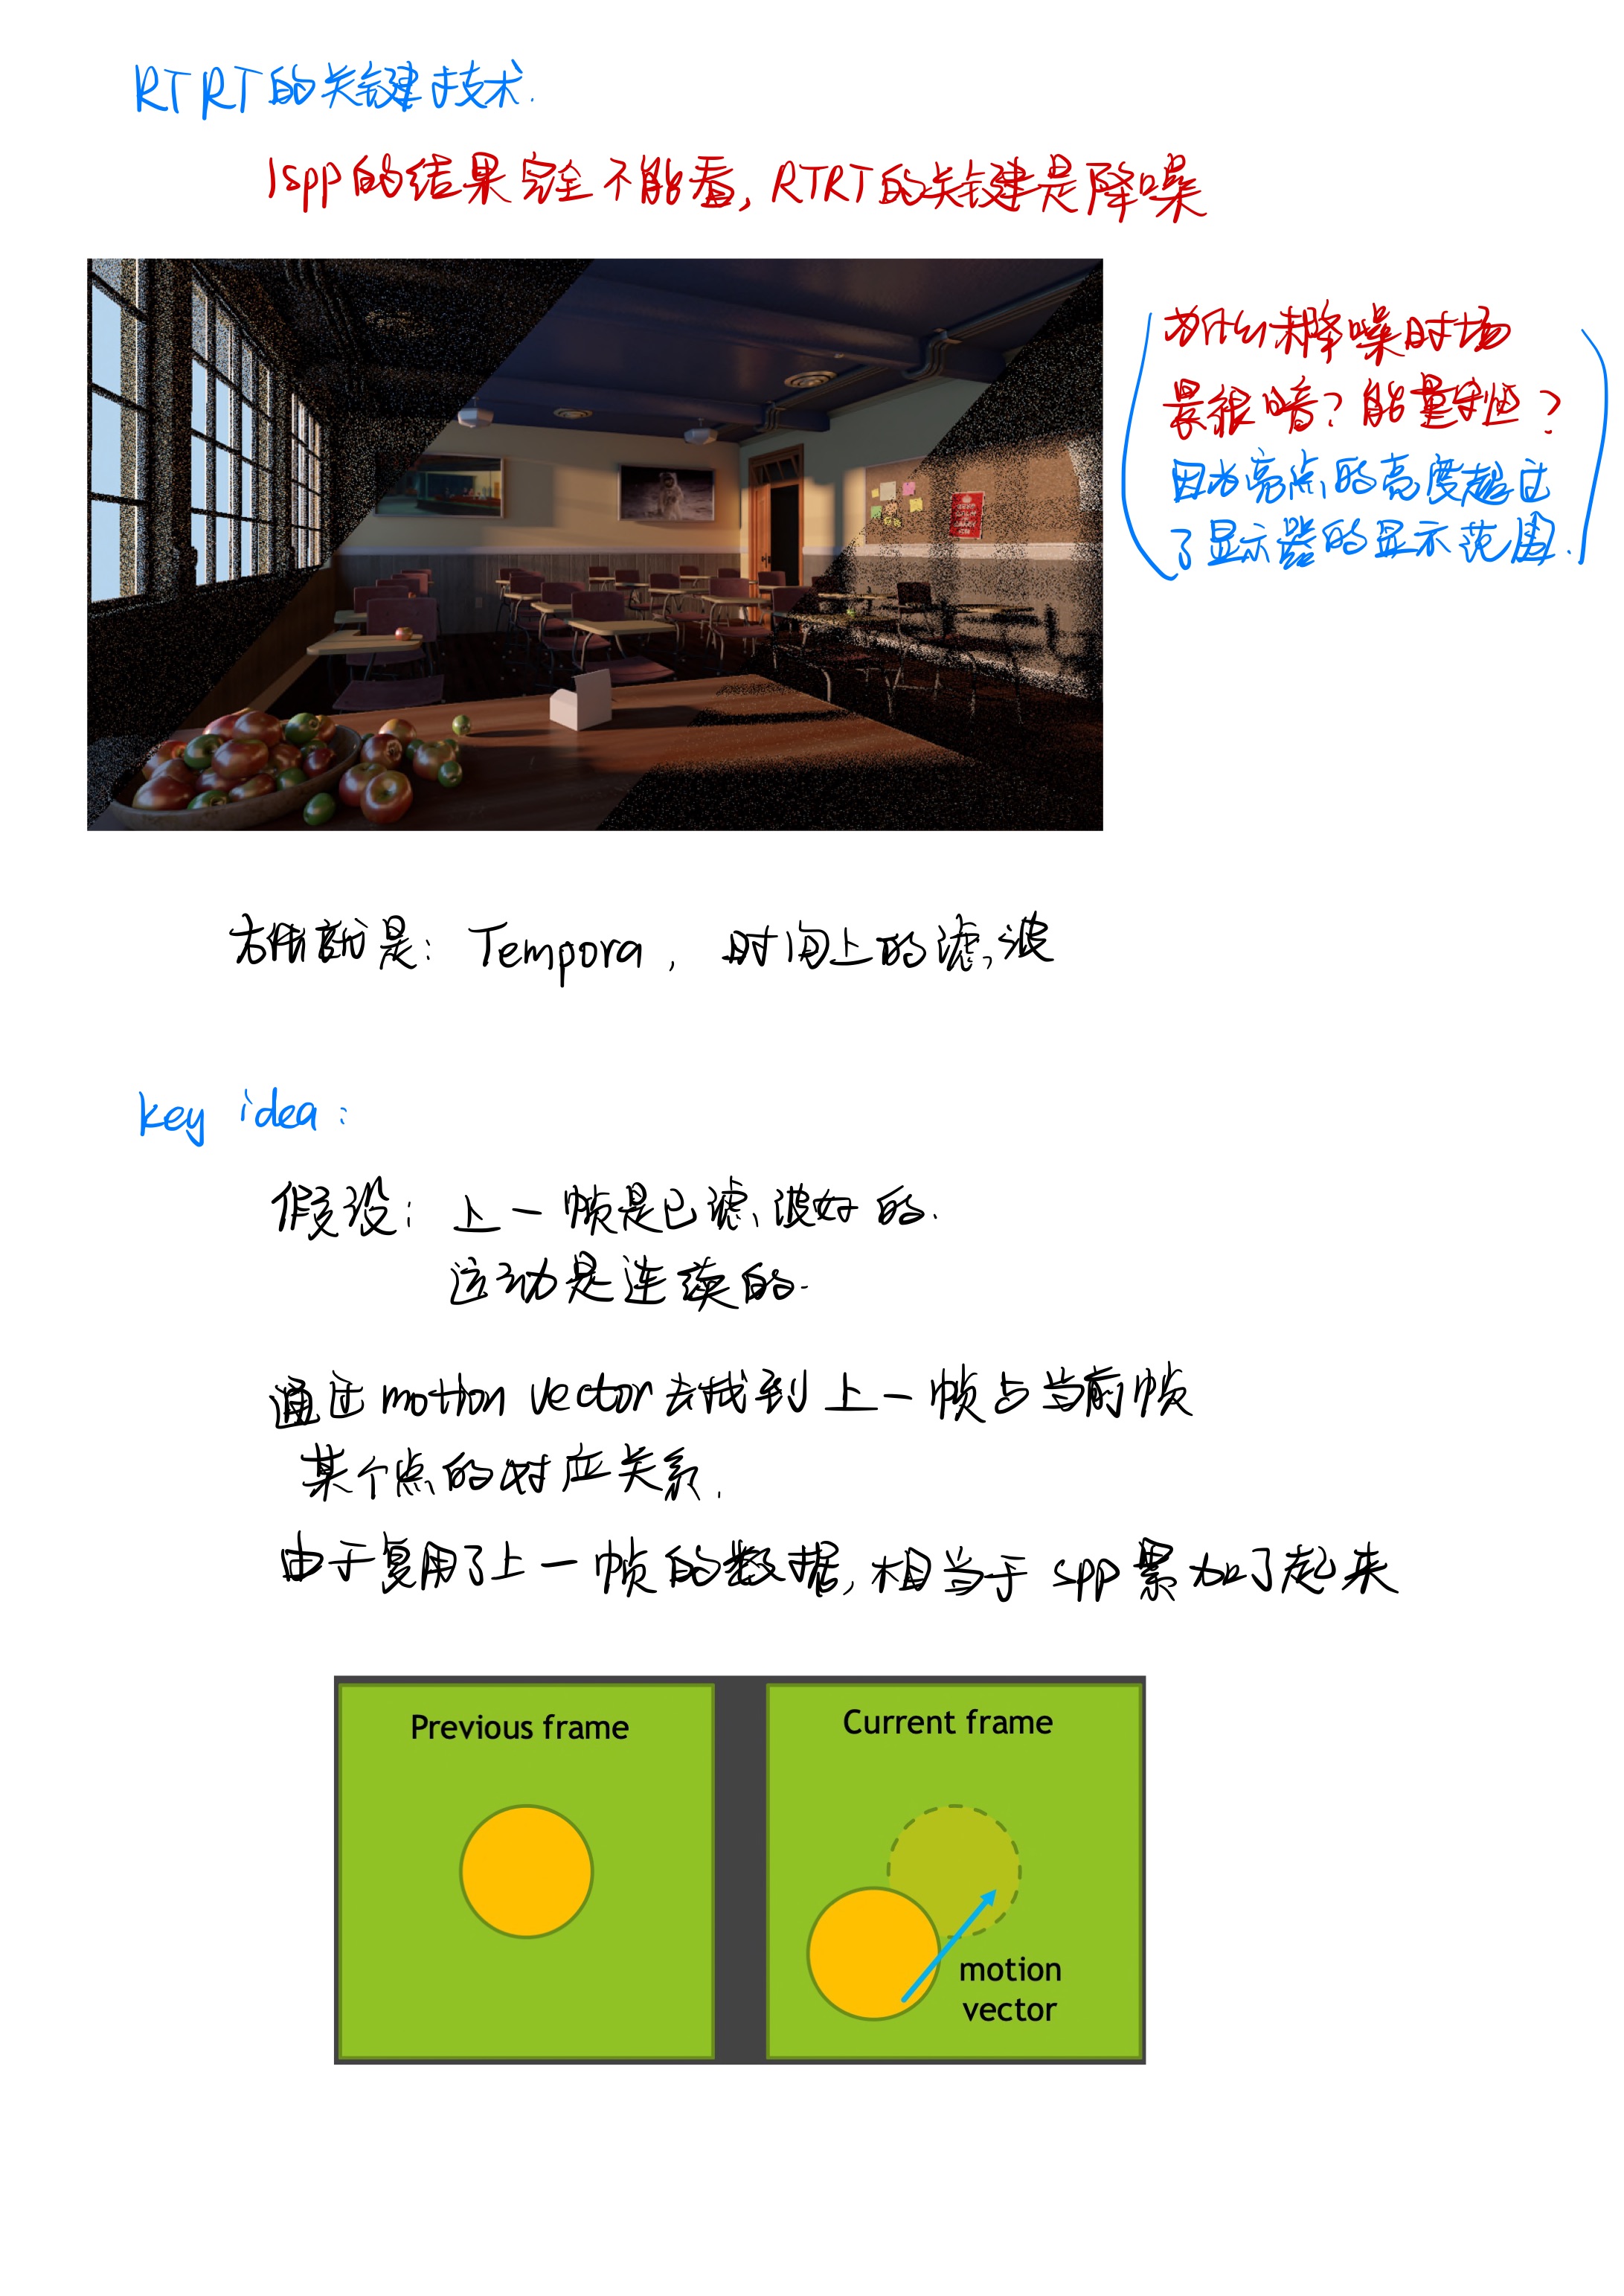 RTRT的关键技术.
1spp的结果完全不能看, RTRT的关键是降噪
为什么未降噪时场
景很暗? 能量守恒?
因为亮点的亮度超过
了显示器的显示范围.
方法就是: Tempora, 时间上的滤波
key idea:
假设: 上一帧是已滤波好的.
运动是连续的.
通过motion vector去找到上一帧与当前帧
某个点的对应关系.
由于复用了上一帧的数据, 相当于spp累加了起来
Previous frame
Current frame
motion
vector